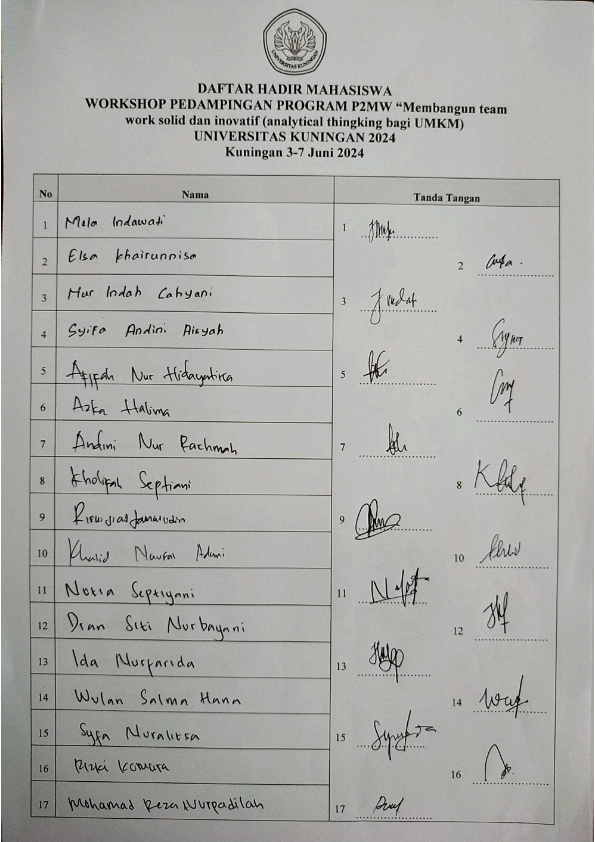 UNIVERSITAS KUNINGAN
DAFTAR HADIR MAHASISWA
WORKSHOP PEDAMPINGAN PROGRAM P2MW “Membangun team
work solid dan inovatif (analytical thingking bagi UMKM)
UNIVERSITAS KUNINGAN 2024
Kuningan 3-7 Juni 2024
No Nama Tanda Tangan
1 Mela Indawati 1
2 Elsa Khairunnisa 2
3 Nur Indah Cahyani 3
4 Syifa Andini Aisyah 4
5 Nur 5
6 Azka Halima 6
7 Andini Nur Rachmah 7
8 Kholifah Septiani 8
9 9
10 Khalid Naufal 10
11 Novia Septiyani 11
12 Dian Siti Nurbayani 12
13 Ida Nurfarida 13
14 Wulan Salma Hana 14
15 Syfa Nuralitsa 15
16 Rizki Komara 16
17 Mohamad Reza Nurpadilah 17